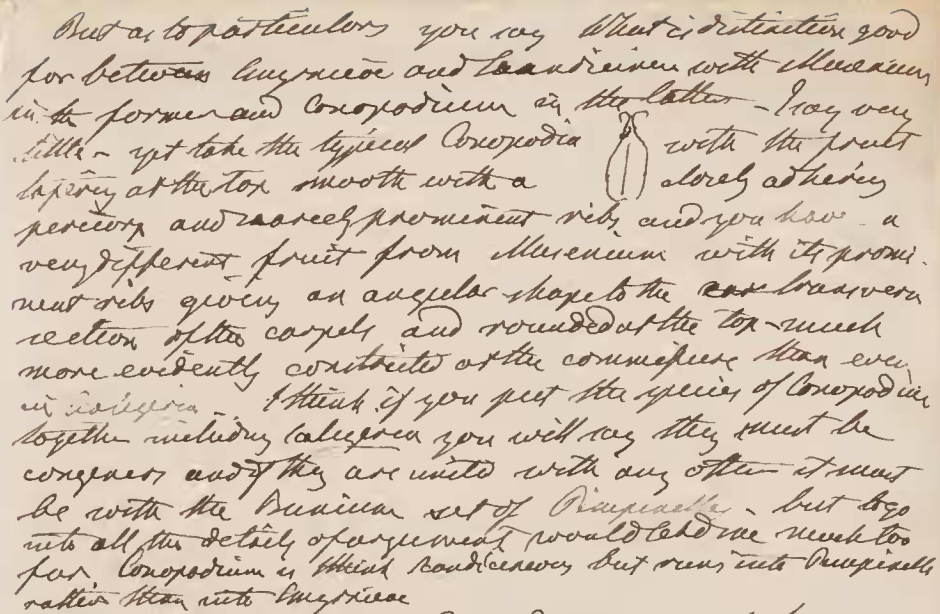 But as to particulars you say What is distinction good
for between Smyrnieae and Scandicineae with Musenium
in the former and Conopodium in the latter – I say very
little – yet take the typical Conopodia with the fruit
tapering at the top smooth with a closely adhering
pericarp and scarcely prominent ribs and you have a
very different fruit from Musenium with its promi-
nent ribs giving an angular shape to the transverse
section of the carpels and rounded at the top – much
more evidently constricted at the commissure than even
in I think if you put the species of Conopodium
together including you will say they must be
congeners and if they are united with any other it must
be with the Bunium set of Pimpinella – but to go
into all the details of argument would lead me much too
far. Conopodium is I think Scandicineous but runs into Pimpinella
rather than into Smyrnieae